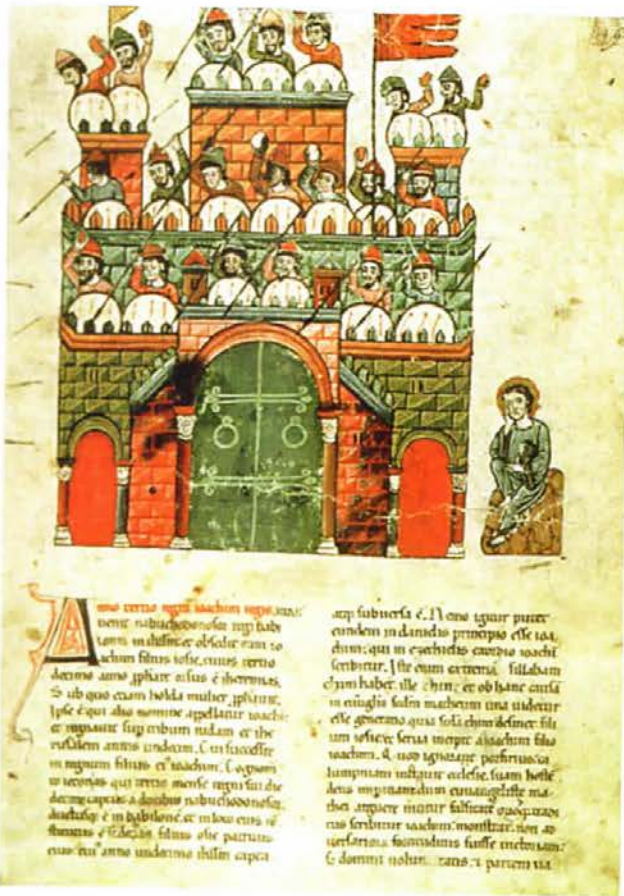 Anno tertio regni ioachim regis iude
uenit nabuchodonosor rex babi
lonis in ihrlm et obsedit eam io
achim filius iosie, cuius tertio
decimo anno pphare orsus est iheremias.
Sub quo etiam holda mulier pphauit.
Ipse e qui alio nomine appellatur
et regnauit sup tribum iudam et ihe
rusalem annis undecim. Cui successit
in regnum filius ei ioachim. Cognom
to ieconias qui tertio mense regni sui die
decima captus a ducibus nabuchodonosor
ductusq; e in babilone. et in loco eius
stitutus e sedechias filius iosie patruus
eius. cui anno undecimo ihrlm capta
atq; subuersa e. Nemo igitur putet
eundem in danielis principio esse ioa
chim: qui in ezechielis exordio ioachi
scribitur. Iste enim extrema sillabam
chim habet. ille chin: et ob hanc causa
in euuglio scdm matheum una uidetur
esse generatio quia sola chim desinet fili
um iosie: et scda incipit a ioachim filio
ioachim. Quod ignorans porfirius ca
lumpniam instruit ecclesie. suam
dens imperitiam dum euuangeliste ma
thei arguere nititur falsitate
scribitur ioachim: monstrat. non ad
uersarios fuisse uictoriam: